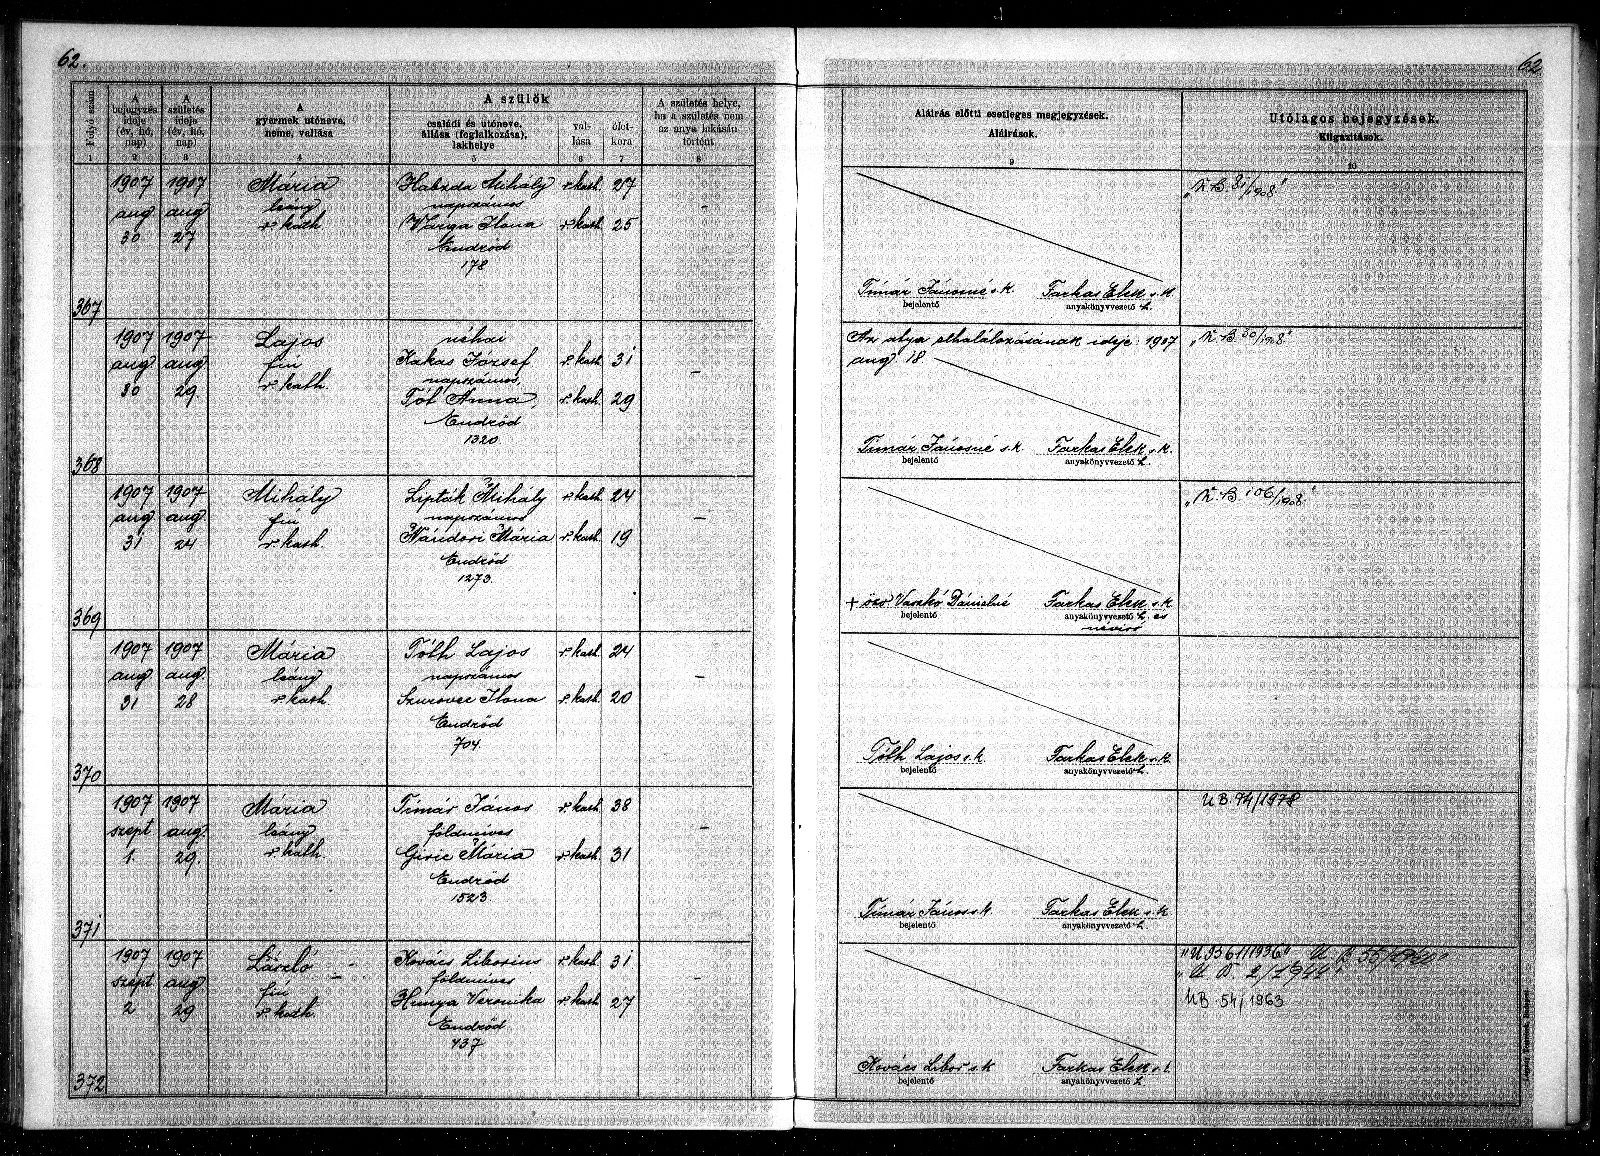 62.
62
Folyó szám
A bejegyzés ideje (év, hó, nap)
A születés ideje (év, hó, nap)
A gyermek utóneve, neme, vallása
A szülők
családi és utóneve, állása (foglalkozása), lakhelye
vallása
életkora
A születés helye, ha a születés nem az anya lakásán történt
Aláírás előtti esetleges megjegyzések.
Aláírások.
Utólagos bejegyzések.
Kiigazítások.
1 2 3 4 5 6 7 8 9 10
367
1907 aug 30
1907 aug 27
Mária
leány
r. kath
Habzda Mihály r. kath 27
napszámos
Varga Ilona r. kath 25
Endrőd
178
-
Tímár Jánosné s. k. Farkas Elek s. k.
bejelentő anyakönyvvezető h.
„K. B. 81/1908"
368
1907 aug 30
1907 aug 29.
Lajos
fiú
r. kath.
néhai
Kakas József r. kath 31
napszámos,
Tót Anna, r. kath. 29
Endrőd
1320.
-
Az atya elhalálozásának ideje: 1907
aug 18.
Tímár Jánosné s. k. Farkas Elek s. k.
bejelentő anyakönyvvezető h.
„K. B. 80/1908"
369
1907 aug 31
1907 aug 24
Mihály
fiú
r. kath.
Lipták Mihály r. kath 24
napszámos
Nándori Mária r. kath 19
Endrőd
1273.
-
+ özv Vaszkó Dánielné Farkas Elek s. k.
bejelentő anyakönyvvezető h. és
névíró
„K. B. 106/1908."
370
1907 aug 31
1907 aug. 28
Mária
leány
r. kath.
Tóth Lajos r. kath. 24
napszámos
Szurovec Ilona r. kath 20
Endrőd
704.
-
Tóth Lajos s. k. Farkas Elek s. k.
bejelentő anyakönyvvezető h.
371
1907 szept 1.
1907 aug. 29.
Mária
leány
r. kath.
Tímár János r. kath. 38
földmíves
Giric Mária r. kath 31
Endrőd
1523.
-
Tímár János s. k. Farkas Elek s. k.
bejelentő anyakönyvvezető h.
UB. 74/1978
372
1907 szept 2
1907 aug 29
László
fiú
r. kath.
Kovács Liborius r. kath 31
földmíves
Hunya Veronika r. kath 27
Endrőd
437
-
Kovács Libor s. k Farkas Elek s. k.
bejelentő anyakönyvvezető h.
„U. B 61/1936" U B 55/1960"
„U B 2/1944"
UB 54/1963